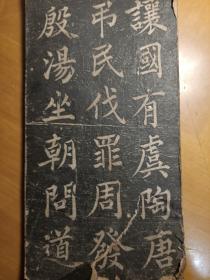 讓國有虞陶唐
弔民伐罪周發
殷湯坐朝問道